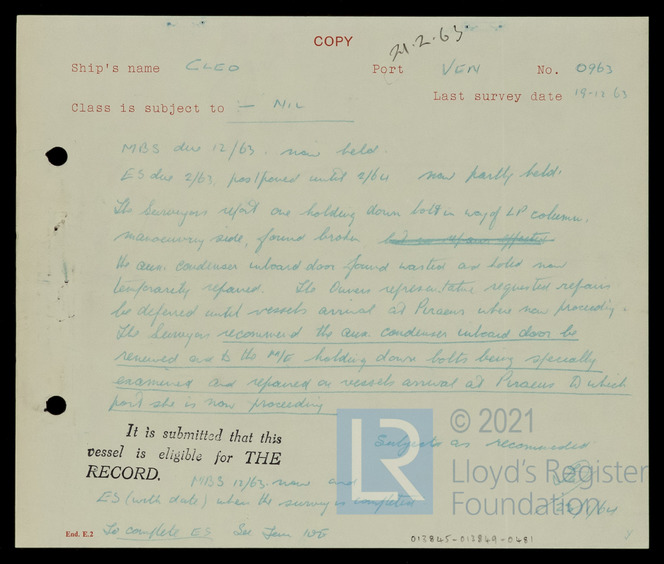 COPY
21.2.63
Ship's name CLEO Port VEN No. 0963
Last survey date 19-12 63
Class is subject to :- NIL
MBS due 12/63. now held.
ES due 2/63, postponed until 2/64 now partly held.
The Surveyors report one holding down bolt in way of LP column,
manoeuvring side, found broken
the aux. condenser inboard door found wasted and holed now
temporarily repaired. The Owners representative requested repairs
be deferred until vessels arrival at Piraeus where now proceeding.
The Surveyors recommend the aux. condenser inboard door be
renewed and to the M/E holding down bolts being specially
examined and repaired on vessels arrival at Piraeus to which
port she is now proceeding
It is submitted that this
vessel is eligible for THE
RECORD.
Subject as recommended
MBS 12/63 now and
ES (with date) when the survey is completed
To complete ES See
End. E.2
012845-012849-0481
LR
© 2021
Lloyd's Register
Foundation